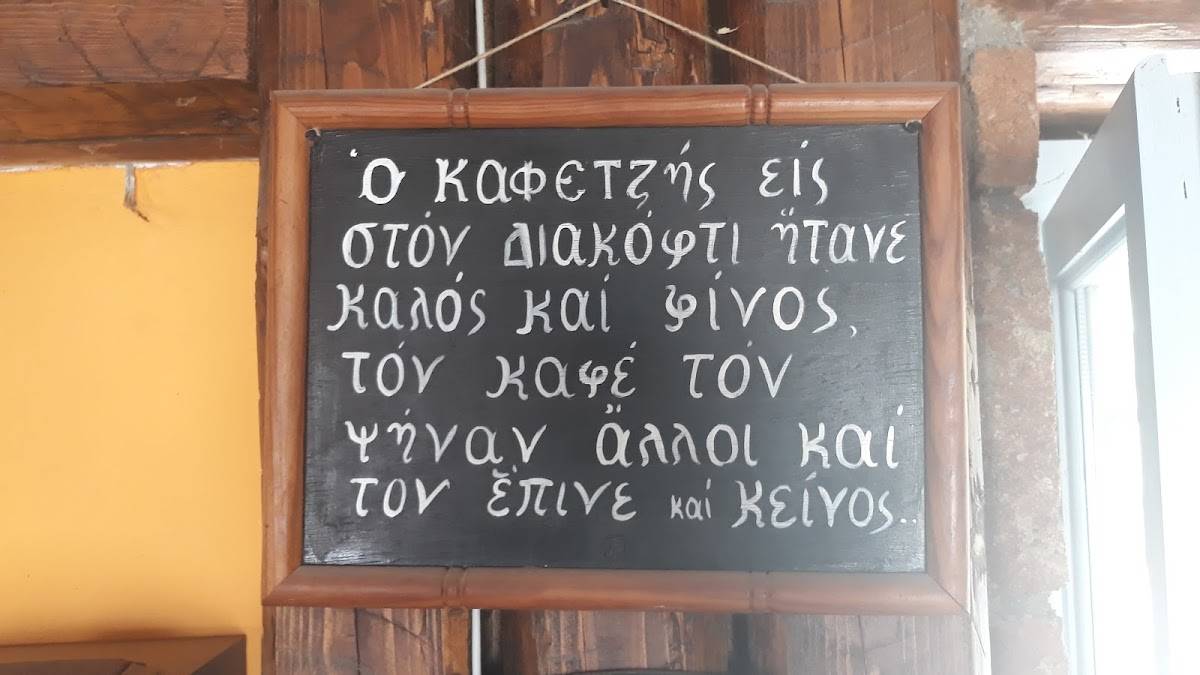 Ὁ καφετζής είς
στόν Διακόφτι ἤτανε
καλός καί φίνος,
τόν καφέ τόν
ψήναν ἄλλοι καί
τον ἔπινε καί κείνος..